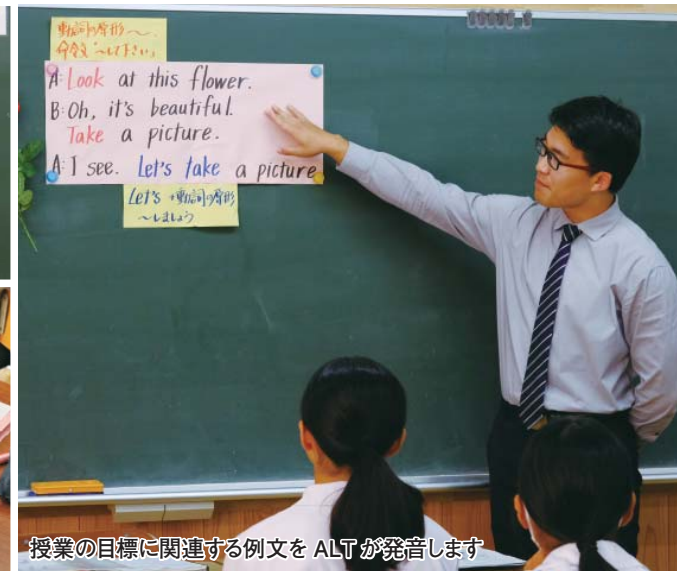 動詞の原形〜、
命令文「〜して下さい」
A: Look at this flower.
B: Oh, it's beautiful.
Take a picture.
A: I see. Let's take a picture
Let's +動詞の原形
〜しましょう
授業の目標に関連する例文を ALT が発音します